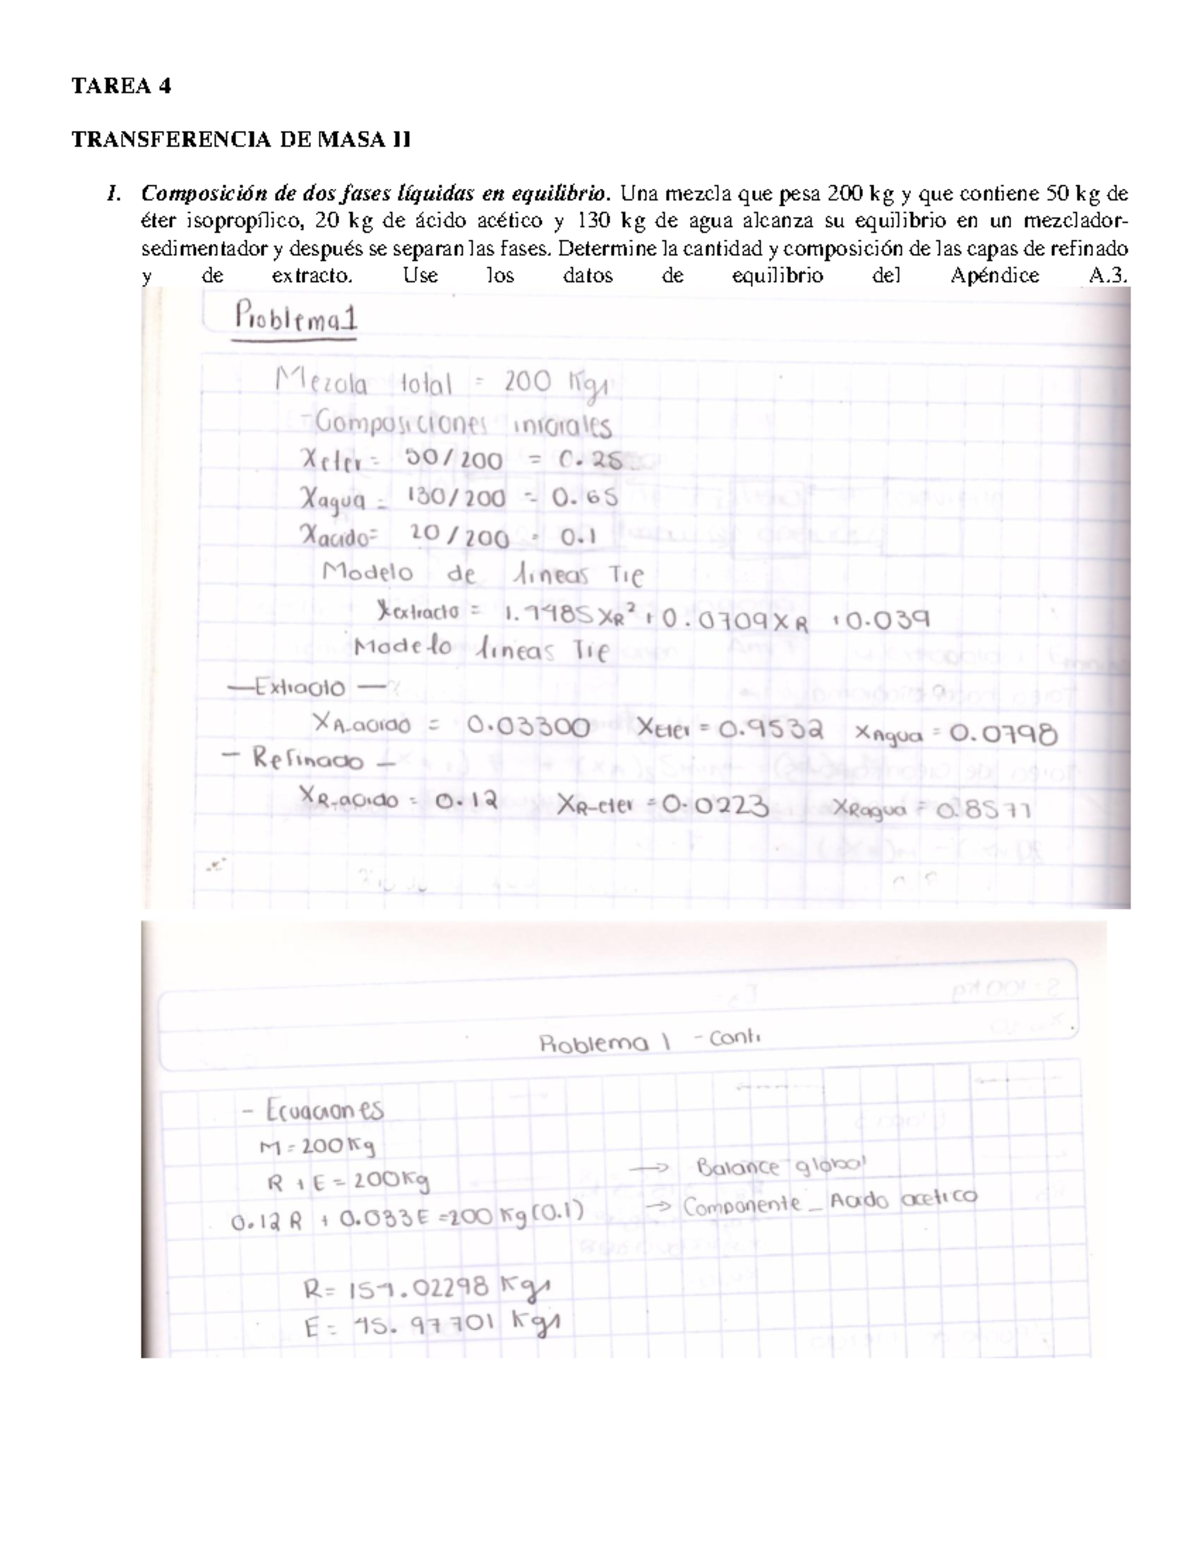 TAREA 4
TRANSFERENCIA DE MASA II
1. Composición de dos fases líquidas en equilibrio. Una mezcla que pesa 200 kg y que contiene 50 kg de
éter isopropílico, 20 kg de ácido acético y 130 kg de agua alcanza su equilibrio en un mezclador-
sedimentador y después se separan las fases. Determine la cantidad y composición de las capas de refinado
y de extracto. Use los datos de equilibrio del Apéndice A.3.
Problema 1
Mezcla total = 200 Kgs
- Composiciones iniciales
Xeter = 50/200 = 0.25
Xagua = 130/200 = 0.65
Xacido = 20/200 = 0.1
Modelo de lineas Tie
Xextracto = XR² + 0.0709XR + 0.039
Modelo lineas Tie
— Extracto —
XA-acido = 0.03300 XEter = 0.9532 XAgua = 0.0798
- Refinado -
XR-acido = 0.12 XR-eter = 0.0223 XRagua = 0.8577
Problema 1 - Conti
- Ecuaciones
M = 200Kg
R + E = 200Kg → Balance global
0.12R + 0.033E = 200 Kg(0.1) → Componente - Acido acetico
R = Kgs
E = 45.97701 Kgs